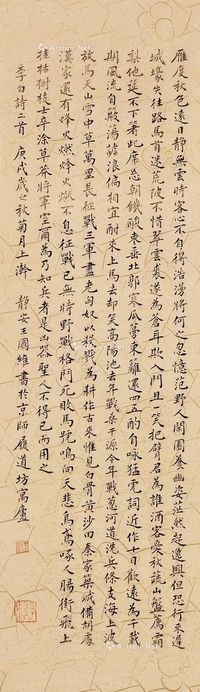 雁度秋色遠日靜無雲時客心不自得浩漫將何之忽憶范野人閑園養幽姿茫然起逸興但恐行來遲
城壕失往路馬首迷荒陂不惜翠雲裘遂為蒼耳欺入門且一笑把臂君為誰酒客愛秋蔬山盤薦霜
梨他筵不下箸此席忘朝饑酸棗垂北郭寒瓜蔓東籬還四五酌自咏猛虎詞近作十日歡遠為千載
期風流自簸蕩謔浪偏相宜酣來上馬去却笑高陽池去年戰桑乾源今年戰葱河道洗兵條支海上波
放馬天山雪中草萬里長征戰三軍盡老匈奴以殺戮為耕作古來惟見白骨黃沙田秦家築城備胡處
漢家還有烽火燃烽火燃不息征戰已無時野戰格鬥死敗馬號鳴向天悲烏鳶啄人腸銜飛上
挂枯樹枝士卒塗草莽將軍空爾為乃知兵者是凶器聖人不得已而用之
李白詩二首 庚戌歲之秋菊月上澣 靜安王國維書於京師履道坊寓廬